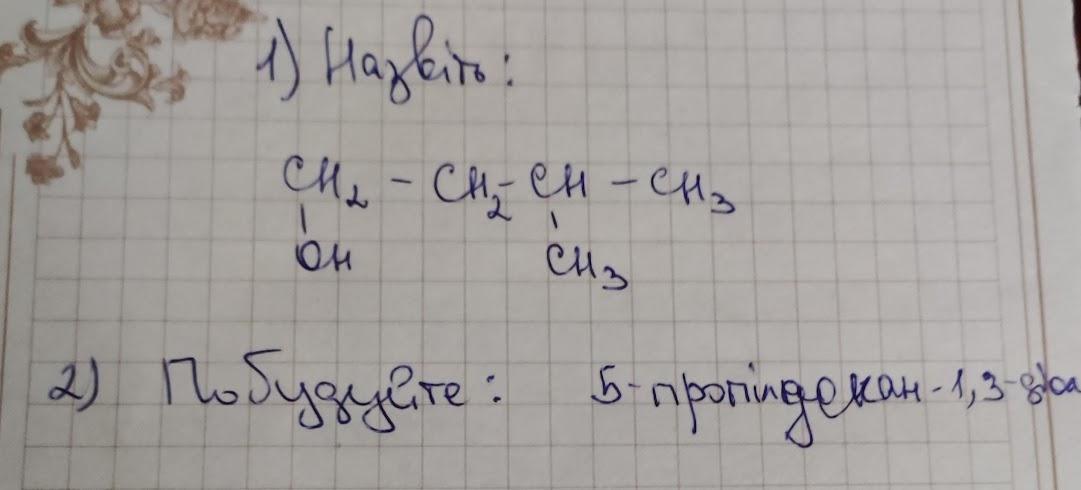 1) Назвіть:
CH₂ - CH₂ - CH - CH₃
OH CH₃
2) Побудуйте: 5-пропілдекан-1,3-